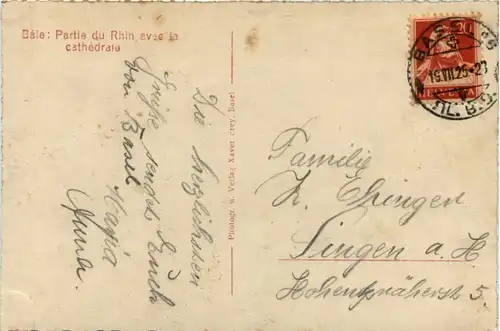 Bâle: Partie du Rhin avec la
cathédrale
Die herzlichsten
Grüße sendet Euch
von Basel
Maria
Anna.
Photogr. u. Verlag Xaver Frey, Basel
BASEL
15.VII.25-23
20
HELVETIA
Familie
K. Ehinger
Singen a. H
5.